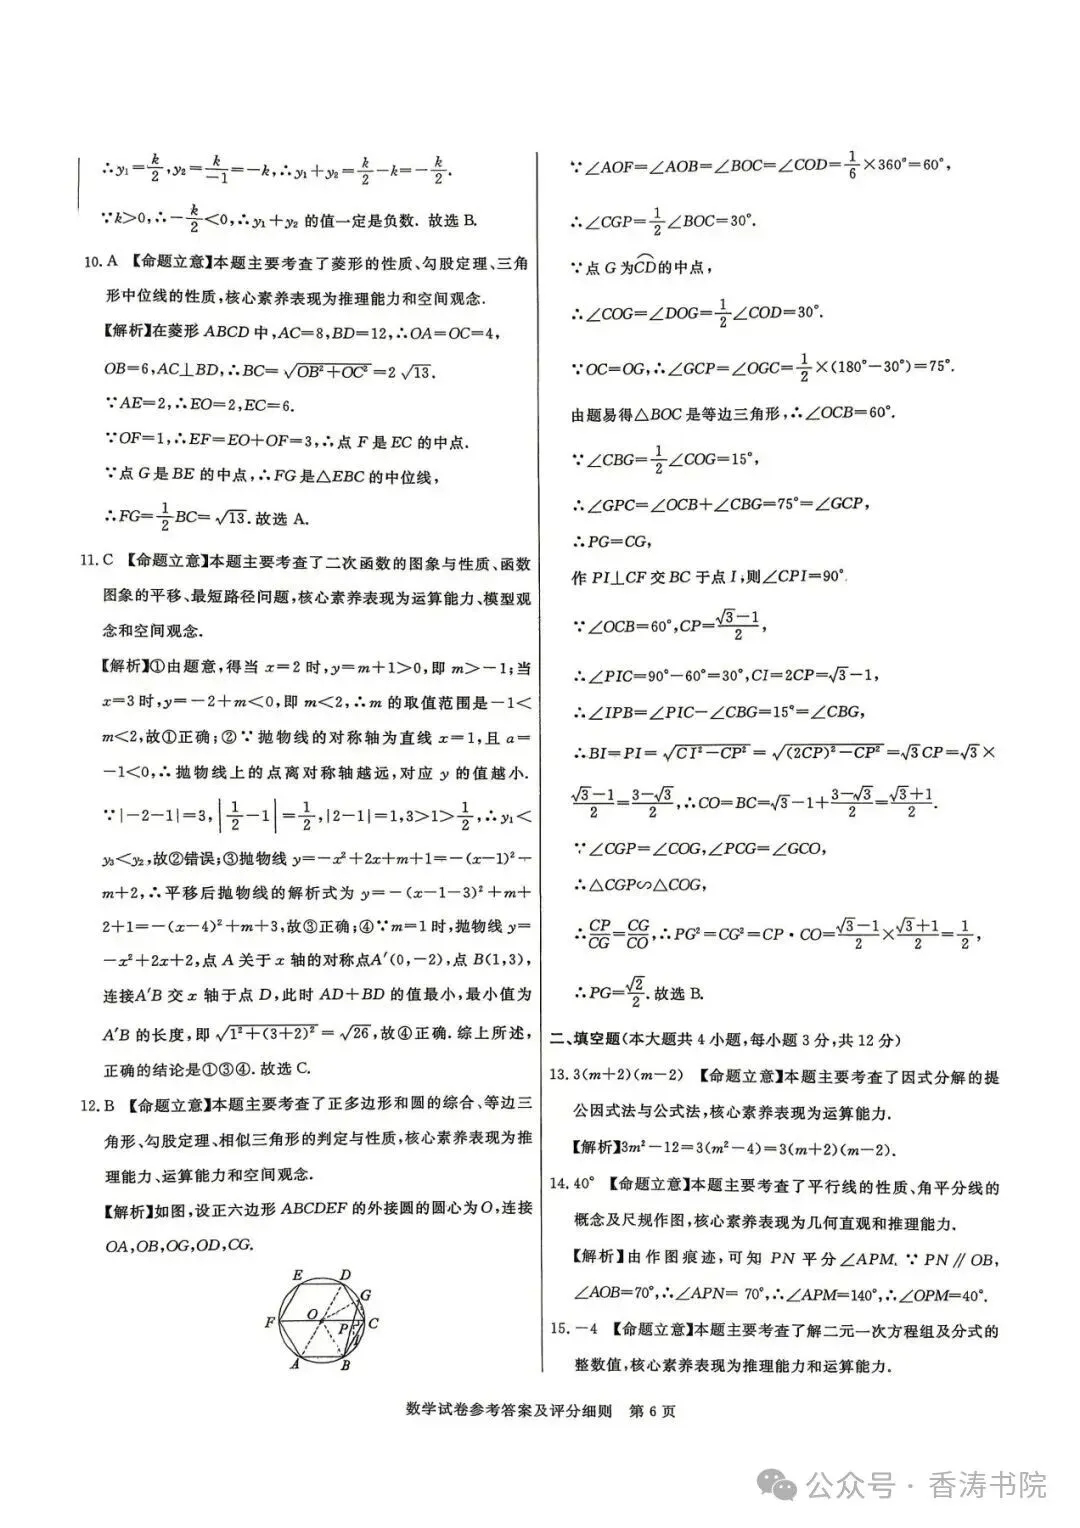 ∴y₁=k/2,y₂=k/-1=-k,∴y₁+y₂=k/2-k=-k/2.
∵k>0,∴-k/2<0,∴y₁+y₂ 的值一定是负数. 故选 B.
10. A 【命题立意】本题主要考查了菱形的性质、勾股定理、三角
形中位线的性质,核心素养表现为推理能力和空间观念.
【解析】在菱形 ABCD 中,AC=8,BD=12,∴OA=OC=4,
OB=6,AC⊥BD,∴BC=√(OB²+OC²)=2√13.
∵AE=2,∴EO=2,EC=6.
∵OF=1,∴EF=EO+OF=3,∴点 F 是 EC 的中点.
∵点 G 是 BE 的中点,∴FG 是△EBC 的中位线,
∴FG=1/2BC=√13.故选 A.
11. C 【命题立意】本题主要考查了二次函数的图象与性质、函数
图象的平移、最短路径问题,核心素养表现为运算能力、模型观
念和空间观念.
【解析】①由题意,得当 x=2 时,y=m+1>0,即 m>-1;当
x=3 时,y=-2+m<0,即 m<2,∴m 的取值范围是-1<
m<2,故①正确;②∵抛物线的对称轴为直线 x=1,且 a=
-1<0,∴抛物线上的点离对称轴越远,对应 y 的值越小.
∵|-2-1|=3,|1/2-1|=1/2,|2-1|=1,3>1>1/2,∴y₁<
y₃<y₂,故②错误;③抛物线 y=-x²+2x+m+1=-(x-1)²-
m+2,∴平移后抛物线的解析式为 y=-(x-1-3)²+m+
2+1=-(x-4)²+m+3,故③正确;④∵m=1 时,抛物线 y=
-x²+2x+2,点 A 关于 x 轴的对称点A′(0,-2),点 B(1,3),
连接A′B 交 x 轴于点 D,此时 AD+BD 的值最小,最小值为
A′B 的长度,即 √(1²+(3+2)²)=√26,故④正确. 综上所述,
正确的结论是①③④. 故选 C.
12. B 【命题立意】本题主要考查了正多边形和圆的综合、等边三
角形、勾股定理、相似三角形的判定与性质,核心素养表现为推
理能力、运算能力和空间观念.
【解析】如图,设正六边形 ABCDEF 的外接圆的圆心为 O,连接
OA,OB,OG,OD,CG.
E D
G
F O C
P I
A B
∵∠AOF=∠AOB=∠BOC=∠COD=1/6×360°=60°,
∴∠CGP=1/2∠BOC=30°.
∵点 G 为CD的中点,
∴∠COG=∠DOG=1/2∠COD=30°.
∵OC=OG,∴∠GCP=∠OGC=1/2×(180°-30°)=75°.
由题易得△BOC 是等边三角形,∴∠OCB=60°.
∵∠CBG=1/2∠COG=15°,
∴∠GPC=∠OCB+∠CBG=75°=∠GCP,
∴PG=CG,
作 PI⊥CF 交 BC 于点 I,则∠CPI=90°.
∵∠OCB=60°,CP=(√3-1)/2,
∴∠PIC=90°-60°=30°,CI=2CP=√3-1,
∴∠IPB=∠PIC-∠CBG=15°=∠CBG,
∴BI=PI=√(CI²-CP²)=√((2CP)²-CP²)=√3CP=√3×
(√3-1)/2=(3-√3)/2,∴CO=BC=√3-1+(3-√3)/2=(√3+1)/2.
∵∠CGP=∠COG,∠PCG=∠GCO,
∴△CGP∽△COG,
∴CP/CG=CG/CO,∴PG²=CG²=CP·CO=(√3-1)/2×(√3+1)/2=1/2,
∴PG=√2/2.故选 B.
二、填空题(本大题共 4 小题,每小题 3 分,共 12 分)
13. 3(m+2)(m-2) 【命题立意】本题主要考查了因式分解的提
公因式法与公式法,核心素养表现为运算能力.
【解析】3m²-12=3(m²-4)=3(m+2)(m-2).
14. 40° 【命题立意】本题主要考查了平行线的性质、角平分线的
概念及尺规作图,核心素养表现为几何直观和推理能力.
【解析】由作图痕迹,可知 PN 平分∠APM. ∵PN∥OB,
∠AOB=70°,∴∠APN=70°,∴∠APM=140°,∴∠OPM=40°.
15. -4 【命题立意】本题主要考查了解二元一次方程组及分式的
整数值,核心素养表现为推理能力和运算能力.
数学试卷参考答案及评分细则 第 6 页
公众号·香涛书院